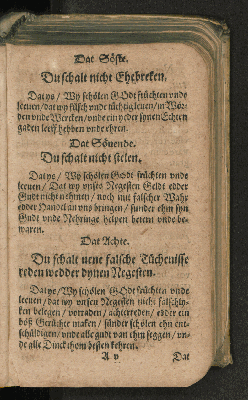 Dat Söste.
Du schalt nicht Ehebreken.
Dat ys / Wy schölen GOdt früchten vnde
leuen / dat wy küsch vnde tüchtig leuen / in Wör-
den vnde Wercken / vnde ein yeder synen Echten
gaden leeff hebben vnde ehren.
Dat Söuende.
Du schalt nicht stelen.
Dat ys / Wy schölen Godt früchten vnde
leuen / Dat wy vnses Negesten Geldt edder
Gudt nicht nehmen / noch mit falscher Wahr
edder Handel an vns bringen / sunder ehm syn
Gudt vnde Nehringe helpen betern vnde be-
waren.
Dat Achte.
Du schalt nene falsche Tüchenisse
reden wedder dynen Negesten.
Dat ys / Wy schölen GOdt früchten vnde
leuen / dat wy vnsen Negesten nicht falschly-
ken belegen / vorraden / achterreden / edder ein
böß Gerüchte maken / sünder schölen ehn ent-
schüldigen / vnde alle gudt van ehm seggen / vn-
de alle Dinck thom besten kehren.
A v Dat